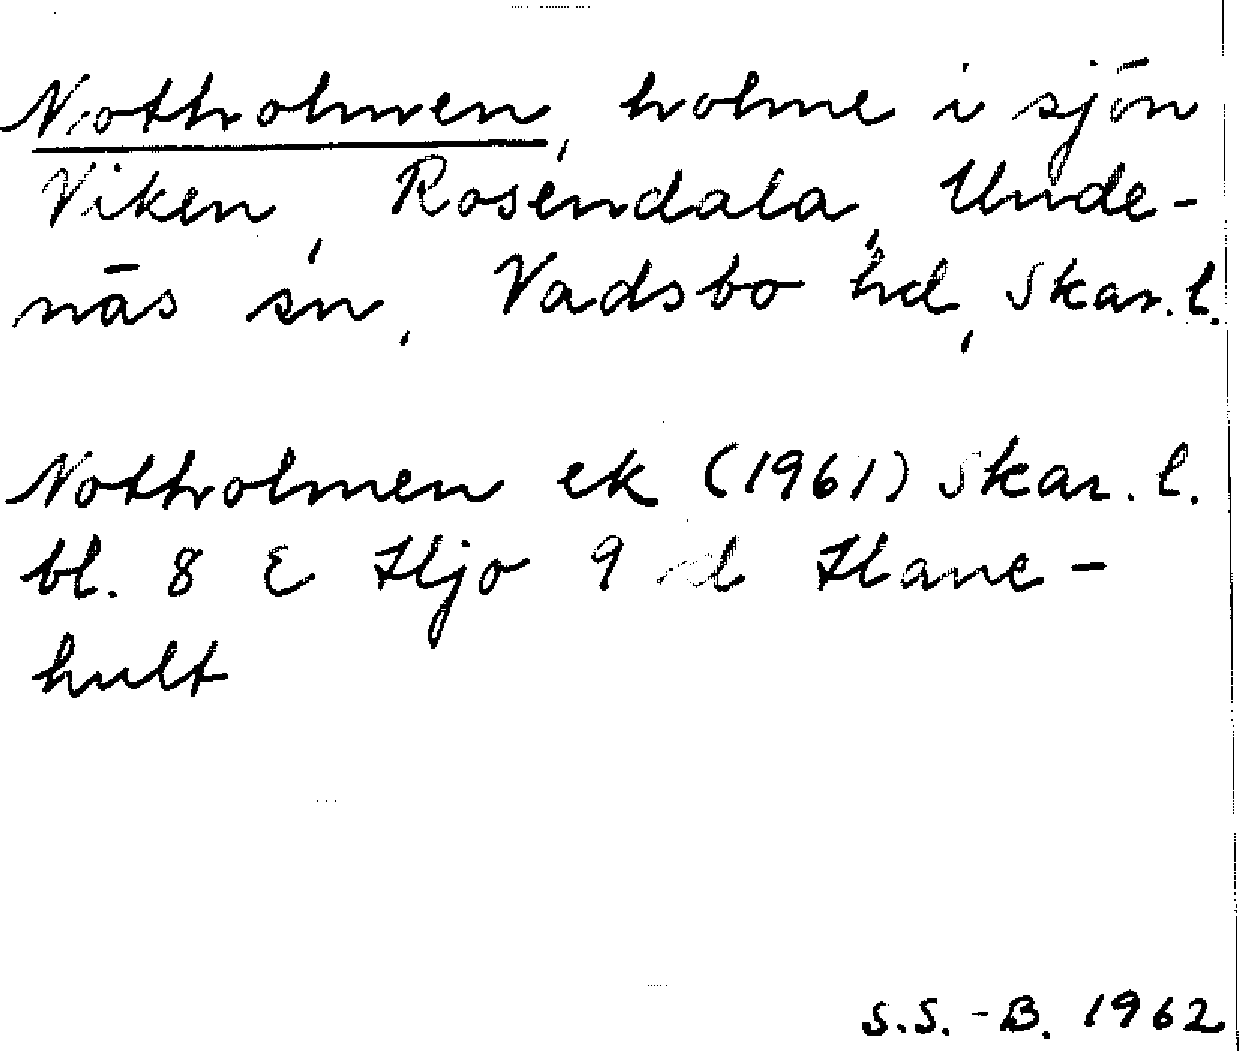 Notholmen, holme i sjön
Viken, Rosendala, Unde-
näs sn, Vadsbo hd, Skar. l.
Notholmen ek (1961) Skar. l.
bl. 8 E Hjo 9 d Hane-
hult
S.S.-B. 1962